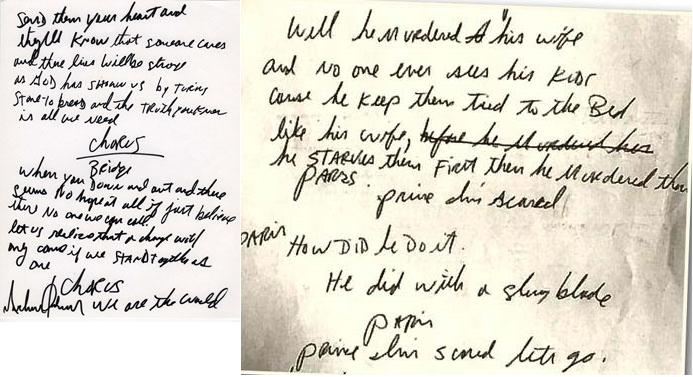 Send them your heart and
they'll Know that someone cares
and there lives will be strong
as God has shown us by turing
stone to bread and the Truth
is all we need
CHORUS
Bridge
when you Down and out and there
seems No hope at all if just believe
ther No one we can call
let us realize that a change will
my come if we STAND together as
one
CHORUS
we are the would
Well he Murdered his wife
and no one ever sees his Kids
cause he keep them tied to the Bed
like his wife, before he Murdered his
he STARVES them First then he Murdered them
PARIS
prince I'm scared
PARIS
How DiD he Do it.
He did with a blade
PARIS
prince I'm scared lets go.